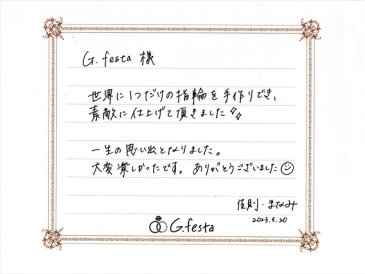 G.festa 様
世界に1つだけの指輪を手作りでき、
素敵に仕上げて頂きました
一生の思い出となりました。
大変楽しかったです。ありがとうございました
佳則・まなみ
2023.5.20
G.festa